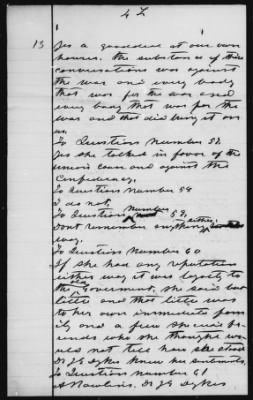 42
13 Yes a good deal at our own
houses. the substance of these
conversations was against
the war and every body
that was for the war and
every body that was for the
war and that did bring it on
us.
To Question Number 52
Yes she talked in favor of the
union cause and against the
Confederacy.
To Question Number 54
I do not,
To Question Number 59,
Dont remember anything either
way.
To Question Number 60
If she had any reputation
either way it was loyalty to
the old Government, she said but
little and that little was
to her own immediate fam
ily and a few special fri
ends who she thought wo
uld not tell how she stood
Dr J G Dykes knew her sentiments.
To Question Number 61
A Rawlins. Dr J G Dykes